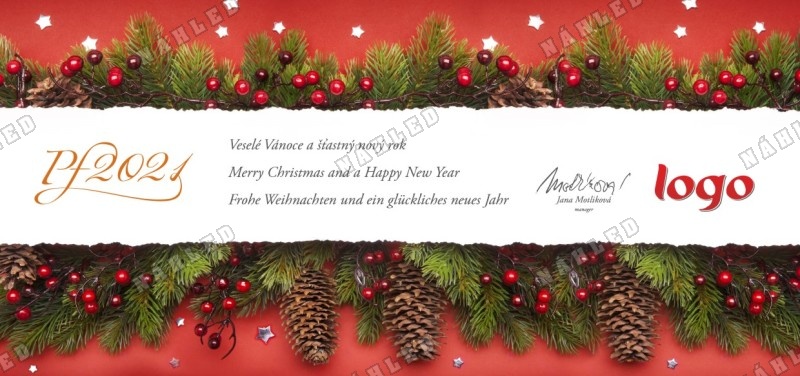 Pf 2021
Veselé Vánoce a šťastný nový rok
Merry Christmas and a Happy New Year
Frohe Weihnachten und ein glückliches neues Jahr
Jana Motlíková
manager
logo
NÁHLED
NÁHLED
NÁHLED
NÁHLED
NÁHLED
NÁHLED
NÁHLED
NÁHLED
NÁHLED
NÁHLED
NÁHLED
NÁHLED